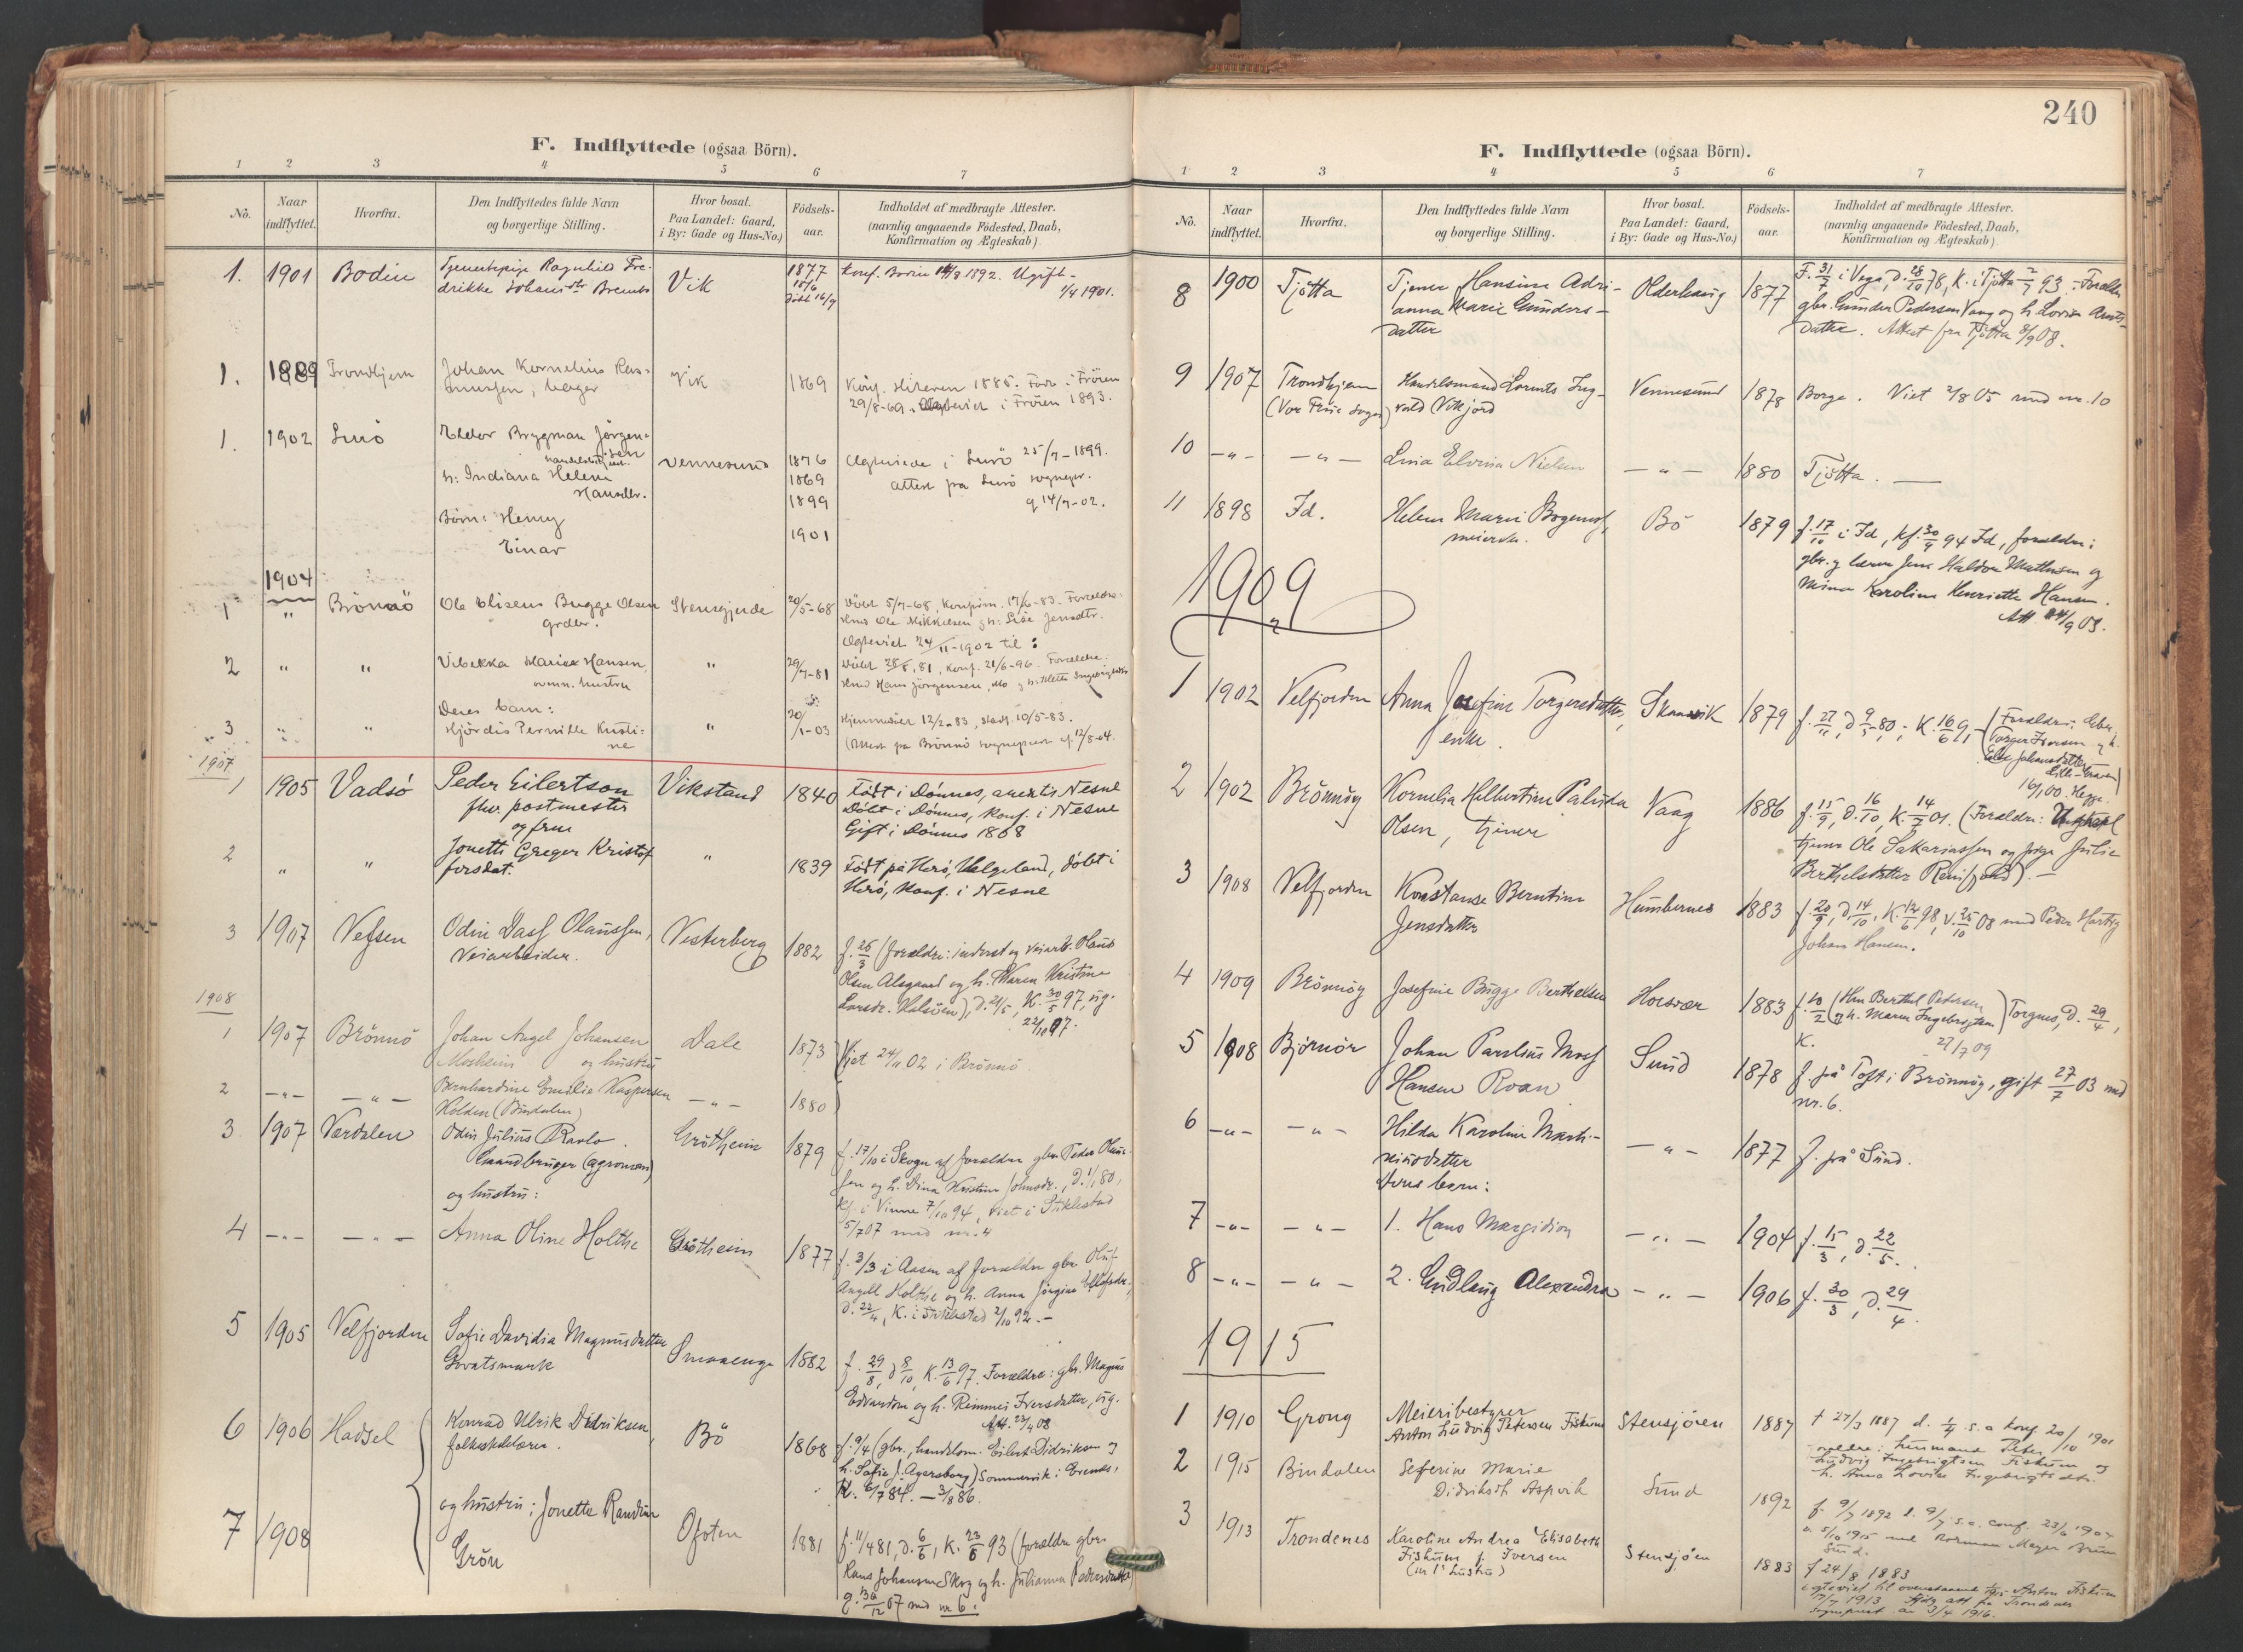 240
F. Indflyttede (ogsaa Börn).
1 2 3 4 5 6 7
No.
Naar indflyttet.
Hvorfra.
Den Indflyttedes fulde Navn og borgerlige Stilling.
Hvor bosat. Paa Landet: Gaard, i By: Gade og Hus-No.)
Födsels-aar.
Indholdet af medbragte Attester. (navnlig angaaende Födested, Daab, Konfirmation og Ægteskab)
1. 1901 Bodin Tjenestepige Ragnhild Fre-
drikke Johansdtr Brembs Vik 1877
Konf. Bodin 1892. Ugift -
1/4 1901.
1. 1889 Trondhjem Johan Kornelius Ras-
mussen, bager Vik 1869
Konf. Hitteren 1885. Født i Fröien
29/8-69. Ægteviet i Fröien 1893.
1. 1902 Lurö Eldor Brygman Jörgen-
sen Vennesund 1876
h: Indiana Helene
Hansdtr. 1869
Börn: Henry 1899
Einar 1901
Ægteviede i Lurö 25/7-1899.
Attest fra Lurö sognepr.
14/7-02.
1904
1 " Brönnö Ole Elisens Bugge Olsen Stensgjerde 20/5-68
grdbr.
Döbt 5/7-68, Konfirm. 17/6-83. Forældre:
Ole Mikkelsen og h: Lise Jensdtr.
Ægteviet 24/11-1902 til:
2 " " Vibekka Marie Hansen, " 29/7-81
ovenn. hustru
Döbt 28/8, 81, Konf. 21/6-96. Forældre:
Hans Jörgensen, Mo
Deres barn:
3 " " Hjördis Pernille Kristi-
ne " 20/1-03
Hjemmedöbt 12/2-03, stadf. 10/5-03.
(Attest fra Brönnö sogneprest af 12/8-04.
1907
1 1905 Vadsö Peder Eilertson Vikstand 1840
fhv. postmester
og frue
Født i Dönnes, anexts Nesne
Döbt i Dönnes, konf. i Nesne
Gift i Dönnes 1868
2 " " Jonetti Greger Kristof
fersdat. " 1839
Født på Herö, Helgeland, döbt i
Herö, konf. i Nesne
3 1907 Vefsen Odin Dass Olaussen, Vesterberg 1882
Veiarbeider.
f. 26/3 (forældre: inderst og veiarb. Olaus
Olsen Alsgaard og h. Maren Kristine
Larsdr. Halsöen), D. 21/5, K. 30/5 97, ug.
1908
1 1907 Brönnö Johan Angel Johansen Dale 1873
Mosheim og hustru
Viet 24/11 02 i Brönnö
2 -"- -"- Bernhardine Emilie Kaspersen -"- 1880
Holden (Bindalen)
3 1907 Værdalen Odin Julius Ravlo. Gröttheim 1879
Gaardbruger (agronom)
og hustru:
f. 17/10 i Skogn af forældre gbr. Peder Olaus-
sen og h. Dina Kristine Johnsdr., D. 1/1 80,
Kf. i Vinne 7/10 94, Viet i Stiklestad
5/7 07 med nr. 4
4 -"- -"- Anna Oline Holthe Gröttheim 1877
f. 3/3 i Aasen af forældre gbr. Oluf
Angell Holthe og h. Anna Jörgine
D. 22/4, K. i Stiklestad 2/10 92. -
5 1905 Velfjorden Sofie Davidia Magnusdatter Smaaenge 1882
Govatsmark
f. 29/8, D 8/10, K. 13/6 97. Forældre: gbr. Magnus
Edvardsen og h. Remmei Iversdatter, ug.
Att. 27/4 08
6 1906 Hadsel Konrad Ulrik Didriksen, Bö 1868
folkeskolelærer.
f. 9/4 (gbr., handelsm. Eilert Didriksen og
h. Sofie f. Agersborg) Sommervik i Evenes,
K. 6/7 84. - 3/8 86.
7 1908 og hustru: Jonetta Randine Ofoten 1881
Grön
f. 11/4 81, D. 6/6, K. 23/6 93 (forældre gbr.
Hans Johansen Skog og h. Julianna Pedersdatter)
g. 30/12 07 med nr 6.
F. Indflyttede (ogsaa Börn).
1 2 3 4 5 6 7
No.
Naar indflyttet.
Hvorfra.
Den Indflyttedes fulde Navn og borgerlige Stilling.
Hvor bosat. Paa Landet: Gaard, i By: Gade og Hus-No.)
Födsels-aar.
Indholdet af medbragte Attester. (navnlig angaaende Födested, Daab, Konfirmation og Ægteskab)
8 1900 Tjötta Tjener Hansine Adri- Olderhaug 1877
anna Marie Gunders-
datter
F. 31/7 i Vega, D. 28/10 78, K. i Tjötta 2/7 93. - Forældre
gbr. Gunder Pedersen Vaag og h. Lovise Arnts-
datter. Attest fra Tjötta 8/9 08.
9 1907 Trondhjem Handelsmand Lorents Ing- Vennesund 1878
(Vor Frue sogn) vald Vikjord
Borge. Viet 2/8 05 med nr. 10
10 -"- -"- Lina Elvina Nielsen -"- 1880 Tjötta. -
11 1898 Id. Helene Marie Bogerud, Bö 1879
meierske.
f. 17/10 i Id, Kf. 30/9 94 Id, forældre:
gbr. og lærer Jens Haldor Mathisen og
Mina Karoline Henriette Hansen.
Att. 24/9 03.
1909
1 1902 Velfjorden Anna Josefine Torgersdatter, Skaanvik 1879
enke.
f. 27/11, D 9/5 80, K. 16/6 9, - (Forældre:
Torger Iversen og h.
Else Johansdatter
16/1 00. Hegge.
2 1902 Brönnöy Kornelia Helbertine Palvida Vaag 1886
Olsen, tjener
f. 15/9, D. 16/10, K. 14/7 01. (Forældre: Ungkarl
tjener Ole Sakariassen og pige Julie
Berthelsdatter Reinfjord). -
3 1908 Velfjorden Konstanse Berntine Humbernes 1883
Jensdatter
f. 20/9, D. 14/10, K. 12/6 98, V. 25/10 08 med Peder Hartvig
Johan Hansen.
4 1909 Brönnöy Josefine Bugge Berthelsen Horsvær 1883
f. 10/2 (Hm Berthel Petersen
og h. Maren Ingebrigtsen) Torgnes, D. 29/4,
K. 27/7 09
5 1908 Björnör Johan Paulius Moss Sund 1878
Hansen Roan
f. på Toft i Brönnöy, gift 27/7 03 med
nr. 6.
6 -"- -"- Hilda Karoline Mark- -"- 1877 f. på Sund.
niusdatter
Deres barn:
7 -"- -"- 1. Hans Margidion -"- 1904 f. 15/3, D. 22/5.
8 -"- -"- 2. Gudlaug Alexandra -"- 1906 f. 30/3, D. 29/4.
1915
1 1910 Grong Meieribestyrer
Anton Ludvig Petersen Fiskum Stensjöen 1887
f 27/3 1887 d. s. a konf 20/10 1901
Forældre: Peter
Ludvig Ingebrigtsen Fiskum og
h. Anna Lovise Ingebrigtsdtr.
2 1915 Bindalen Seferine Marie
Didriksdtr Aspvik Sund 1892
f. 9/7 1892 d. s. a. conf. 23/6 1907
v. 5/10 1915 med Norman Meyer Brun
Sund.
3 1913 Trondenes Karoline Andrea Elisabeth
Fiskum f. Iversen Stensjöen 1883
(nr 1s hustru)
f 24/8 1883
ægteviet til ovenstaaende Anton Fiskum
1913 att fra Trondenes
Sogneprest av 3/4 1916.